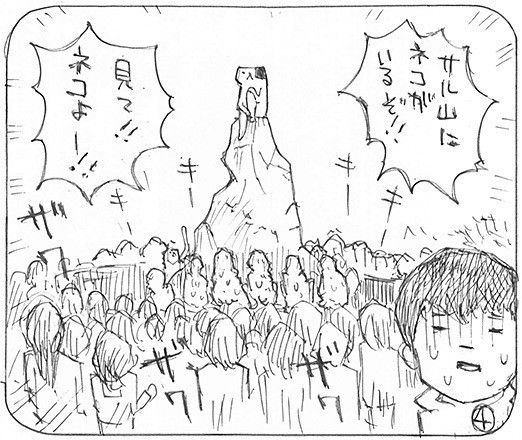 サル山に
ネコが
いるぞ!!
見て!!
ネコよー!!
キー
キー
キー
キー
ザワ
ザワ
ザワ
④